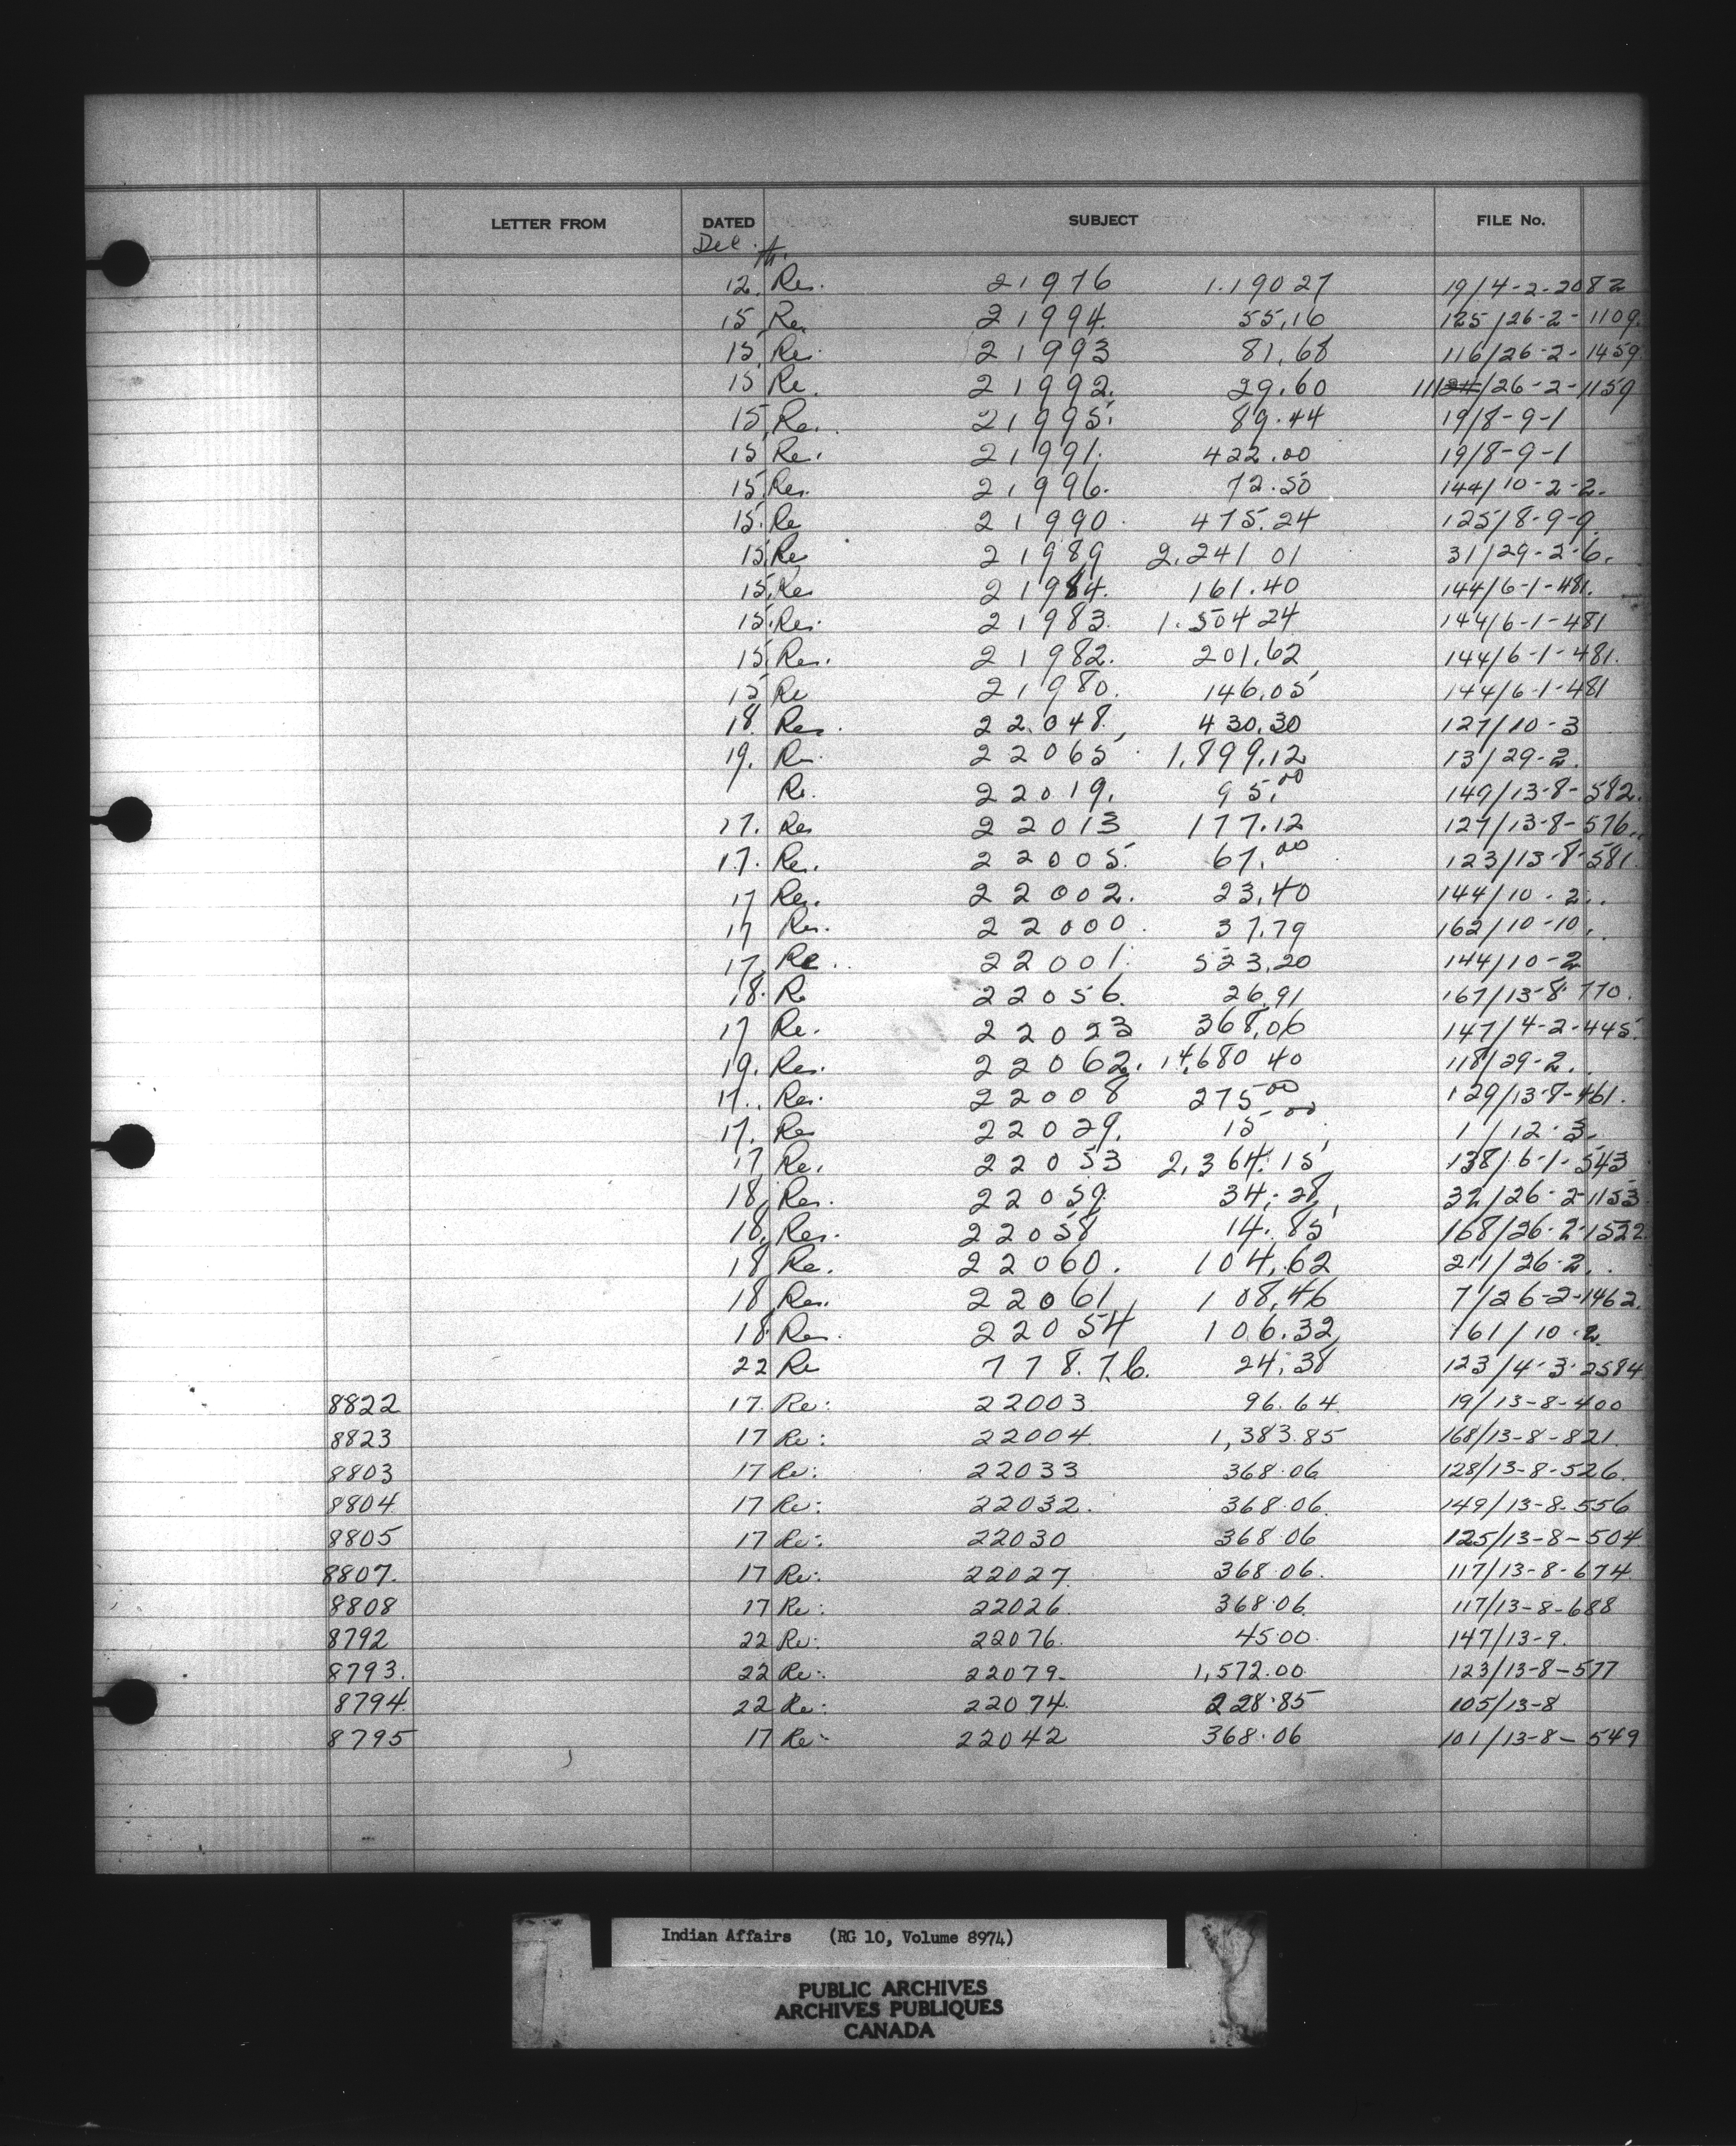 LETTER FROM DATED SUBJECT FILE No.
Dec.
12. Re. 21976 1.190 27 19/4-2-2082
15 Re. 21994. 55.16 125/26-2-1109.
15 Re. 21993 81.68 116/26-2-1459
15 Re. 21992. 29.60 111/26-2-1159
15. Re. 21995. 89.44 19/8-9-1
15 Re. 21991. 422.00 19/8-9-1
15. Re. 21996. 72.50 144/10-2-2.
15. Re 21990. 475.24 125/8-9-9.
15. Re 21989 2.241 01 31/29-2-6.
15. Re 21984. 161.40 144/6-1-481.
15. Re. 21983. 1.504 24 144/6-1-481
15. Re. 21982. 201.62 144/6-1-481.
15 Re 21980. 146.05 144/6-1-481
18. Re. 22.048. 430.30 127/10-3
19. Re. 22065 1,899.12 13/29-2.
Re. 22019. 95.00 149/13-8-582.
17. Re 22013 177.12 127/13-8-576.
17. Re. 22005. 67.00 123/13-8-581.
17 Re. 22002. 23.40 144/10-2.
17 Re. 22000. 37.79 162/10-10.
17. Re. 22001. 523.20 144/10-2
18. Re 22056. 26.91 167/13-8-770.
17 Re. 22023 368.06 147/4-2-445.
19. Re. 22062. 14,680 40 118/29-2.
17. Re. 22008 275 00 129/13-8-461.
17. Re 22029. 15-00 1/12-3.
17 Re. 22053 2,364.15 138/6-1-543
18. Re. 22059. 34.28 32/26-2-1153.
18. Re. 22058 14.85 168/26-2-1522.
18 Re. 22060. 104.62 211/26-2.
18 Re. 22061 108.46 7/26-2-1462.
18. Re. 22054 106.32 161/10-2
22 Re 778.76. 24.38 123/4-3-2584
8822 17. Re: 22003 96.64. 19/13-8-400
8823 17 Re: 22004. 1,383.85 168/13-8-821.
8803 17 Re: 22033 368.06 128/13-8-526.
8804. 17 Re: 22032. 368.06. 149/13-8-556
8805 17 Re: 22030 368 06 125/13-8-504.
8807. 17 Re: 22027. 368.06. 117/13-8-674.
8808 17 Re: 22026. 368.06. 117/13-8-688
8792 22 Re: 22076. 45.00. 147/13-9.
8793. 22 Re: 22079- 1,572.00. 123/13-8-577
8794. 22 Re: 22074. 228.85 105/13-8
8795 17 Re: 22042 368.06 101/13-8-549
Indian Affairs (RG 10, Volume 8974)
PUBLIC ARCHIVES
ARCHIVES PUBLIQUES
CANADA